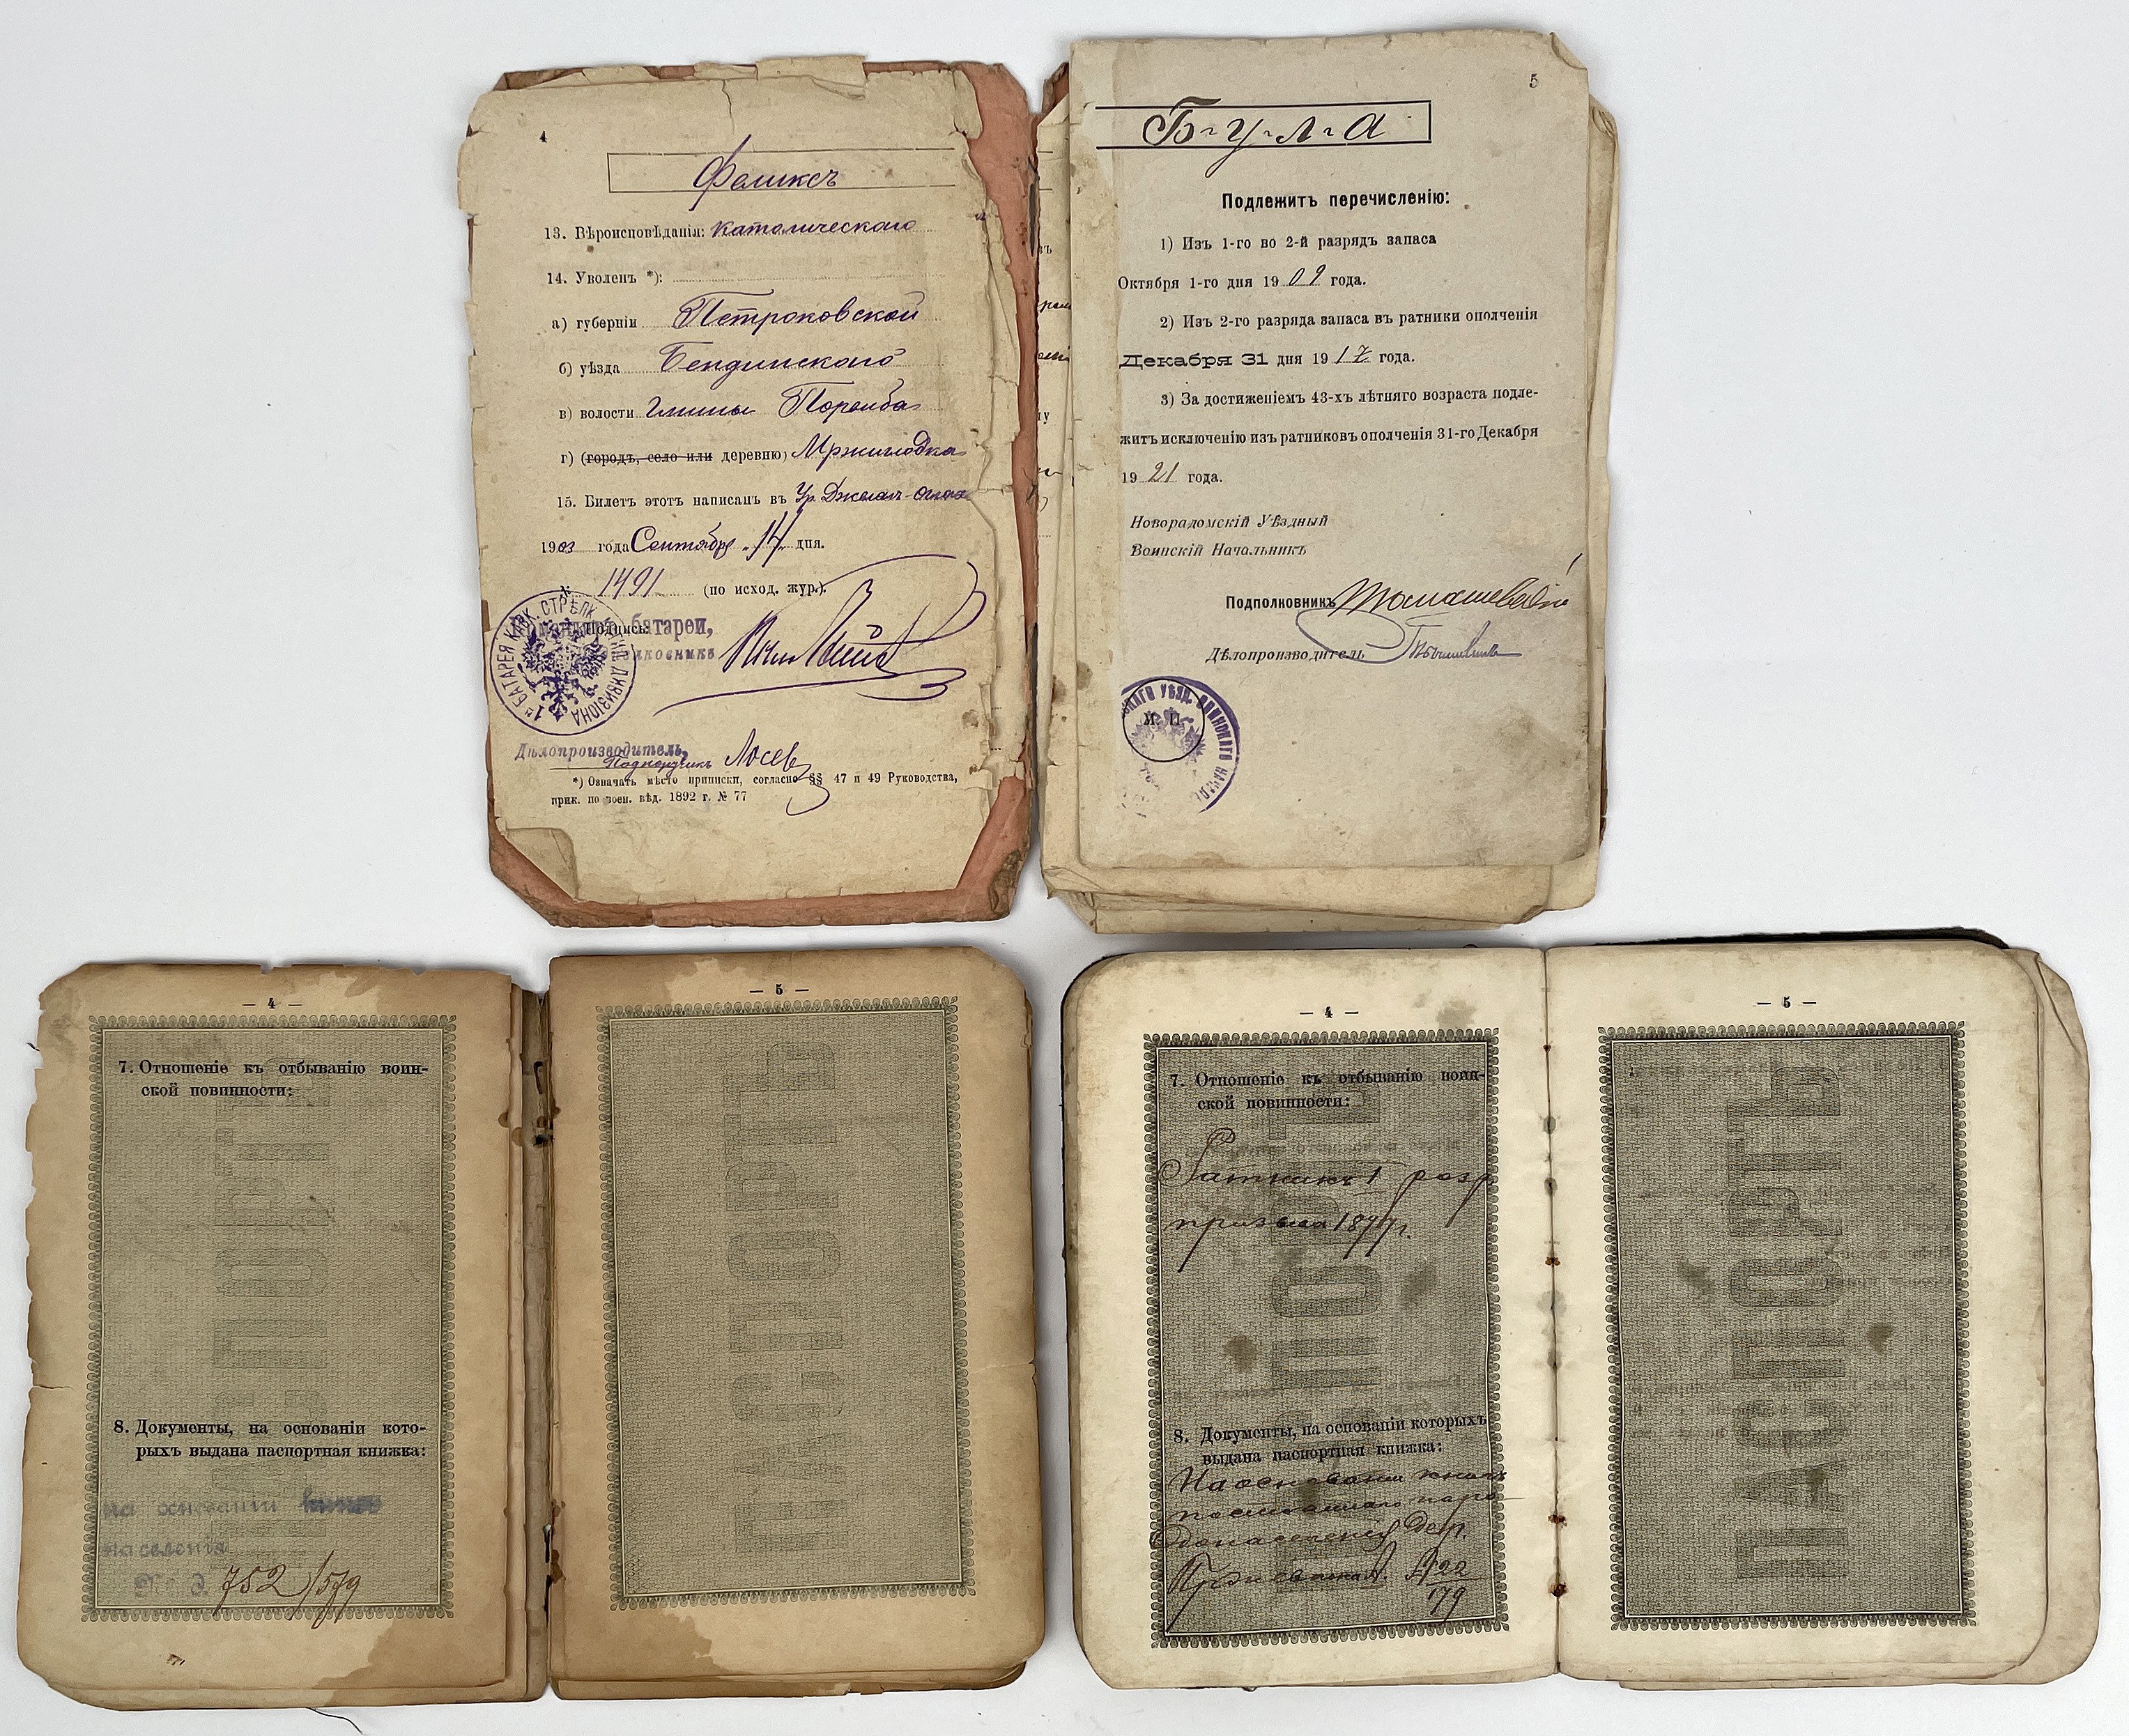 4
Феликсъ
13. Вѣроисповѣданія: католическаго
14. Уволенъ *):
а) губерніи Петроковской
б) уѣзда Бендинскаго
в) волости гмины Поремба
г) (городъ, село или деревню) Мржиглодка
15. Билетъ этотъ написанъ въ Ур. Джелал-Оглы
1903 года Сентября 14 дня.
№ 1491 (по исход. жур.).
Подпись: батареи,
1я БАТАРЕЯ КАВК. СТРѢЛК. ДИВИЗІОНА
Дѣлопроизводитель,
Подпоручикъ Лосев
*) Означать мѣсто приписки, согласно §§ 47 и 49 Руководства,
прик. по воен. вѣд. 1892 г. № 77
5
Б-у-л-а
Подлежитъ перечисленію:
1) Изъ 1-го во 2-й разрядъ запаса
Октября 1-го дня 1909 года.
2) Изъ 2-го разряда запаса въ ратники ополченія
Декабря 31 дня 1917 года.
3) За достиженіемъ 43-хъ лѣтняго возраста подле-
житъ исключенію изъ ратниковъ ополченія 31-го Декабря
1921 года.
Новорадомскій Уѣздный
Воинскій Начальникъ
Подполковникъ Томашевскій
Дѣлопроизводитель
УѢЗД. ВОИНСКАГО НАЧАЛ
М. П.
— 4 —
7. Отношеніе къ отбыванію воин-
ской повинности:
8. Документы, на основаніи кото-
рыхъ выдана паспортная книжка:
на основаніи книгъ
населенія
752/579
— 5 —
ПАСПОРТЪ
— 4 —
7. Отношеніе къ отбыванію воин-
ской повинности:
Ратникъ 1 разр
призыва 1897 г.
8. Документы, на основаніи которыхъ
выдана паспортная книжка:
На основаніи книгъ
постояннаго наро-
донаселенія дер.
179
— 5 —
ПАСПОРТЪ